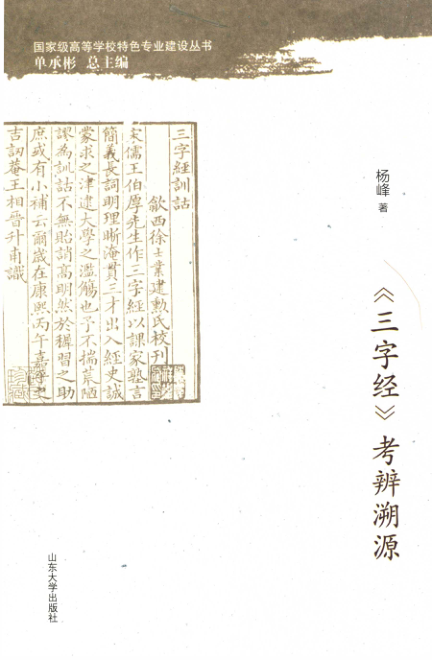 国家级高等学校特色专业建设丛书
单承彬 总主编
杨峰 著
《三字经》考辨溯源
三字經訓詁
歙西徐士業建勳氏校刊
宋儒王伯厚先生作三字經以課家塾言
簡義長詞明理晰淹貫三才出入經史誠
蒙求之津逮大學之濫觴也予不揣荒陋
謬為訓詁不無貽誚高明然於稺習之助
庶或有小補云爾歲在康熙丙午嘉平之
吉訒菴王相晉升甫識
山东大学出版社